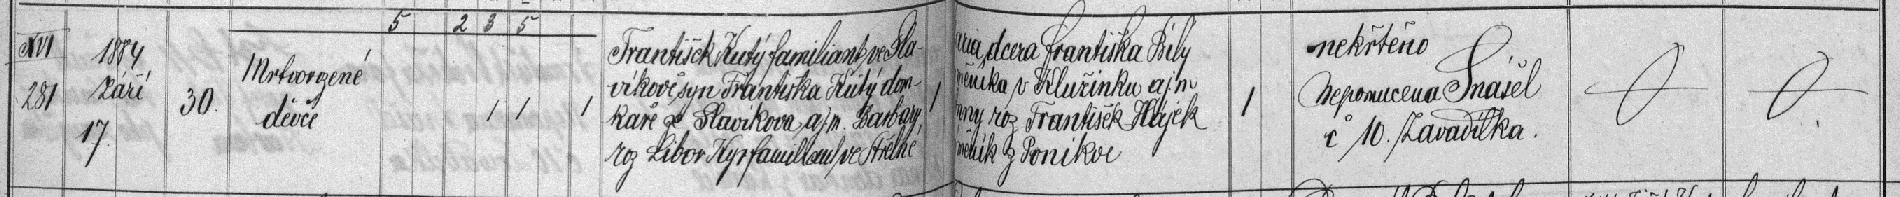 5 2 3 5
XVI 1884
281 Září
17. 30.
Mrtvorozené
děvče
1 1 1
František Kutý familiant ve Sla-
víkově, syn Františka Kutý dom-
káře z Slavíkova a jm. Barbory
roz Libor Kyr familiant ve
dcera Františka Bílý
v Klužínku a jm
roz František Hájek
z Ponikve
1
1
nekřtěno
Nepomucena Snášel
č 10. Zavadilka.